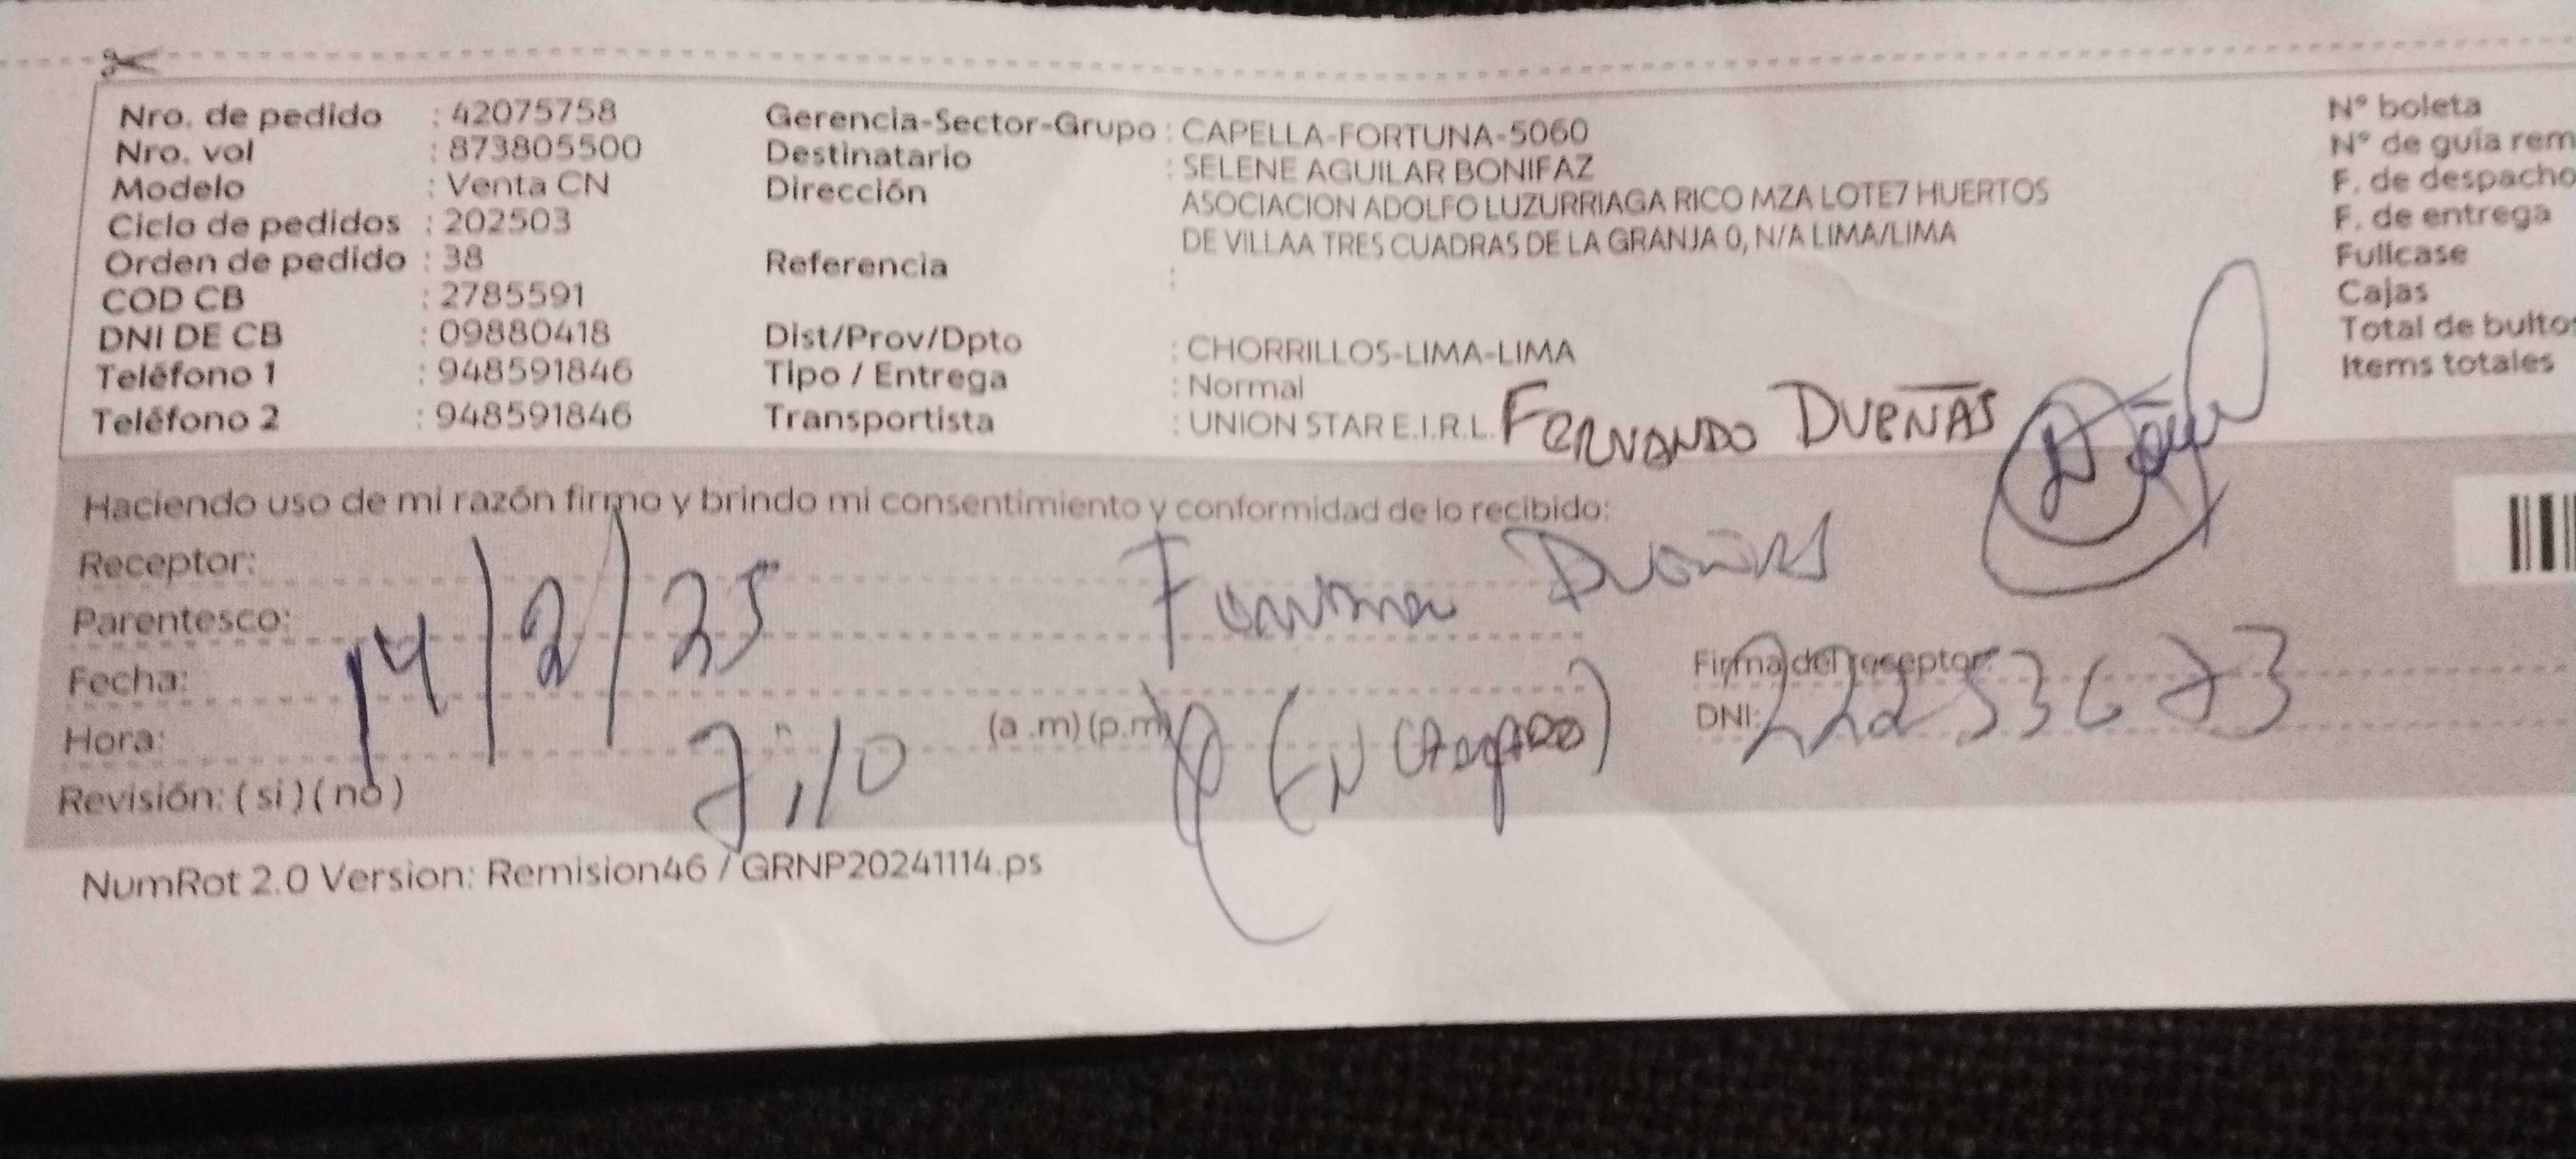 Nro. de pedido : 42075758
Nro. vol : 873805500
Modelo : Venta CN
Ciclo de pedidos : 202503
Orden de pedido : 38
COD CB : 2785591
DNI DE CB : 09880418
Teléfono 1 : 948591846
Teléfono 2 : 948591846
Gerencia-Sector-Grupo : CAPELLA-FORTUNA-5060
Destinatario : SELENE AGUILAR BONIFAZ
Dirección ASOCIACION ADOLFO LUZURRIAGA RICO MZA LOTE7 HUERTOS
DE VILLAA TRES CUADRAS DE LA GRANJA 0, N/A LIMA/LIMA
Referencia :
Dist/Prov/Dpto : CHORRILLOS-LIMA-LIMA
Tipo / Entrega : Normal
Transportista : UNION STAR E.I.R.L. FERNANDO DUEÑAS
N° boleta
N° de guía rem
F. de despacho
F. de entrega
Fullcase
Cajas
Total de bultos
Items totales
Haciendo uso de mi razón firmo y brindo mi consentimiento y conformidad de lo recibido:
Receptor: DUEÑAS
Parentesco:
Fecha: 14/2/25
Firma del receptor:
Hora: 7:10 (a .m) (p.m)
DNI: 22253673
Revisión: ( si ) ( no )
NumRot 2.0 Version: Remision46 / GRNP20241114.ps